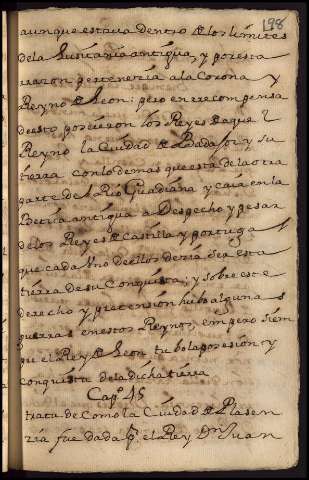 198
aunque estava dentro de los limites
de la Lusitania antigua, y por esta
razon pertenezia a la Corona y
Reyno de Leon: pero en recompensa
de esto poseieron los Reyes de aquel
Reyno la Ciudad de Badajoz y su
tierra con lo demas que esta de la otra
parte del Rio Guadiana y caia en la
Betica antigua a Despecho y pesar
de los Reyes de Castilla y portugal
que cada Uno de ellos dezia ser esta
tierra de su Conquista, y sobre este
derecho y pretension hubo algunas
guerras en estos Reynos, empero siem
pre el Rey de Leon tubo la posesion y
conquista de la dicha tierra
Capº 45
trata de Como la Ciudad de Plasen
zia fue dada pr. el Rey Dn Juan